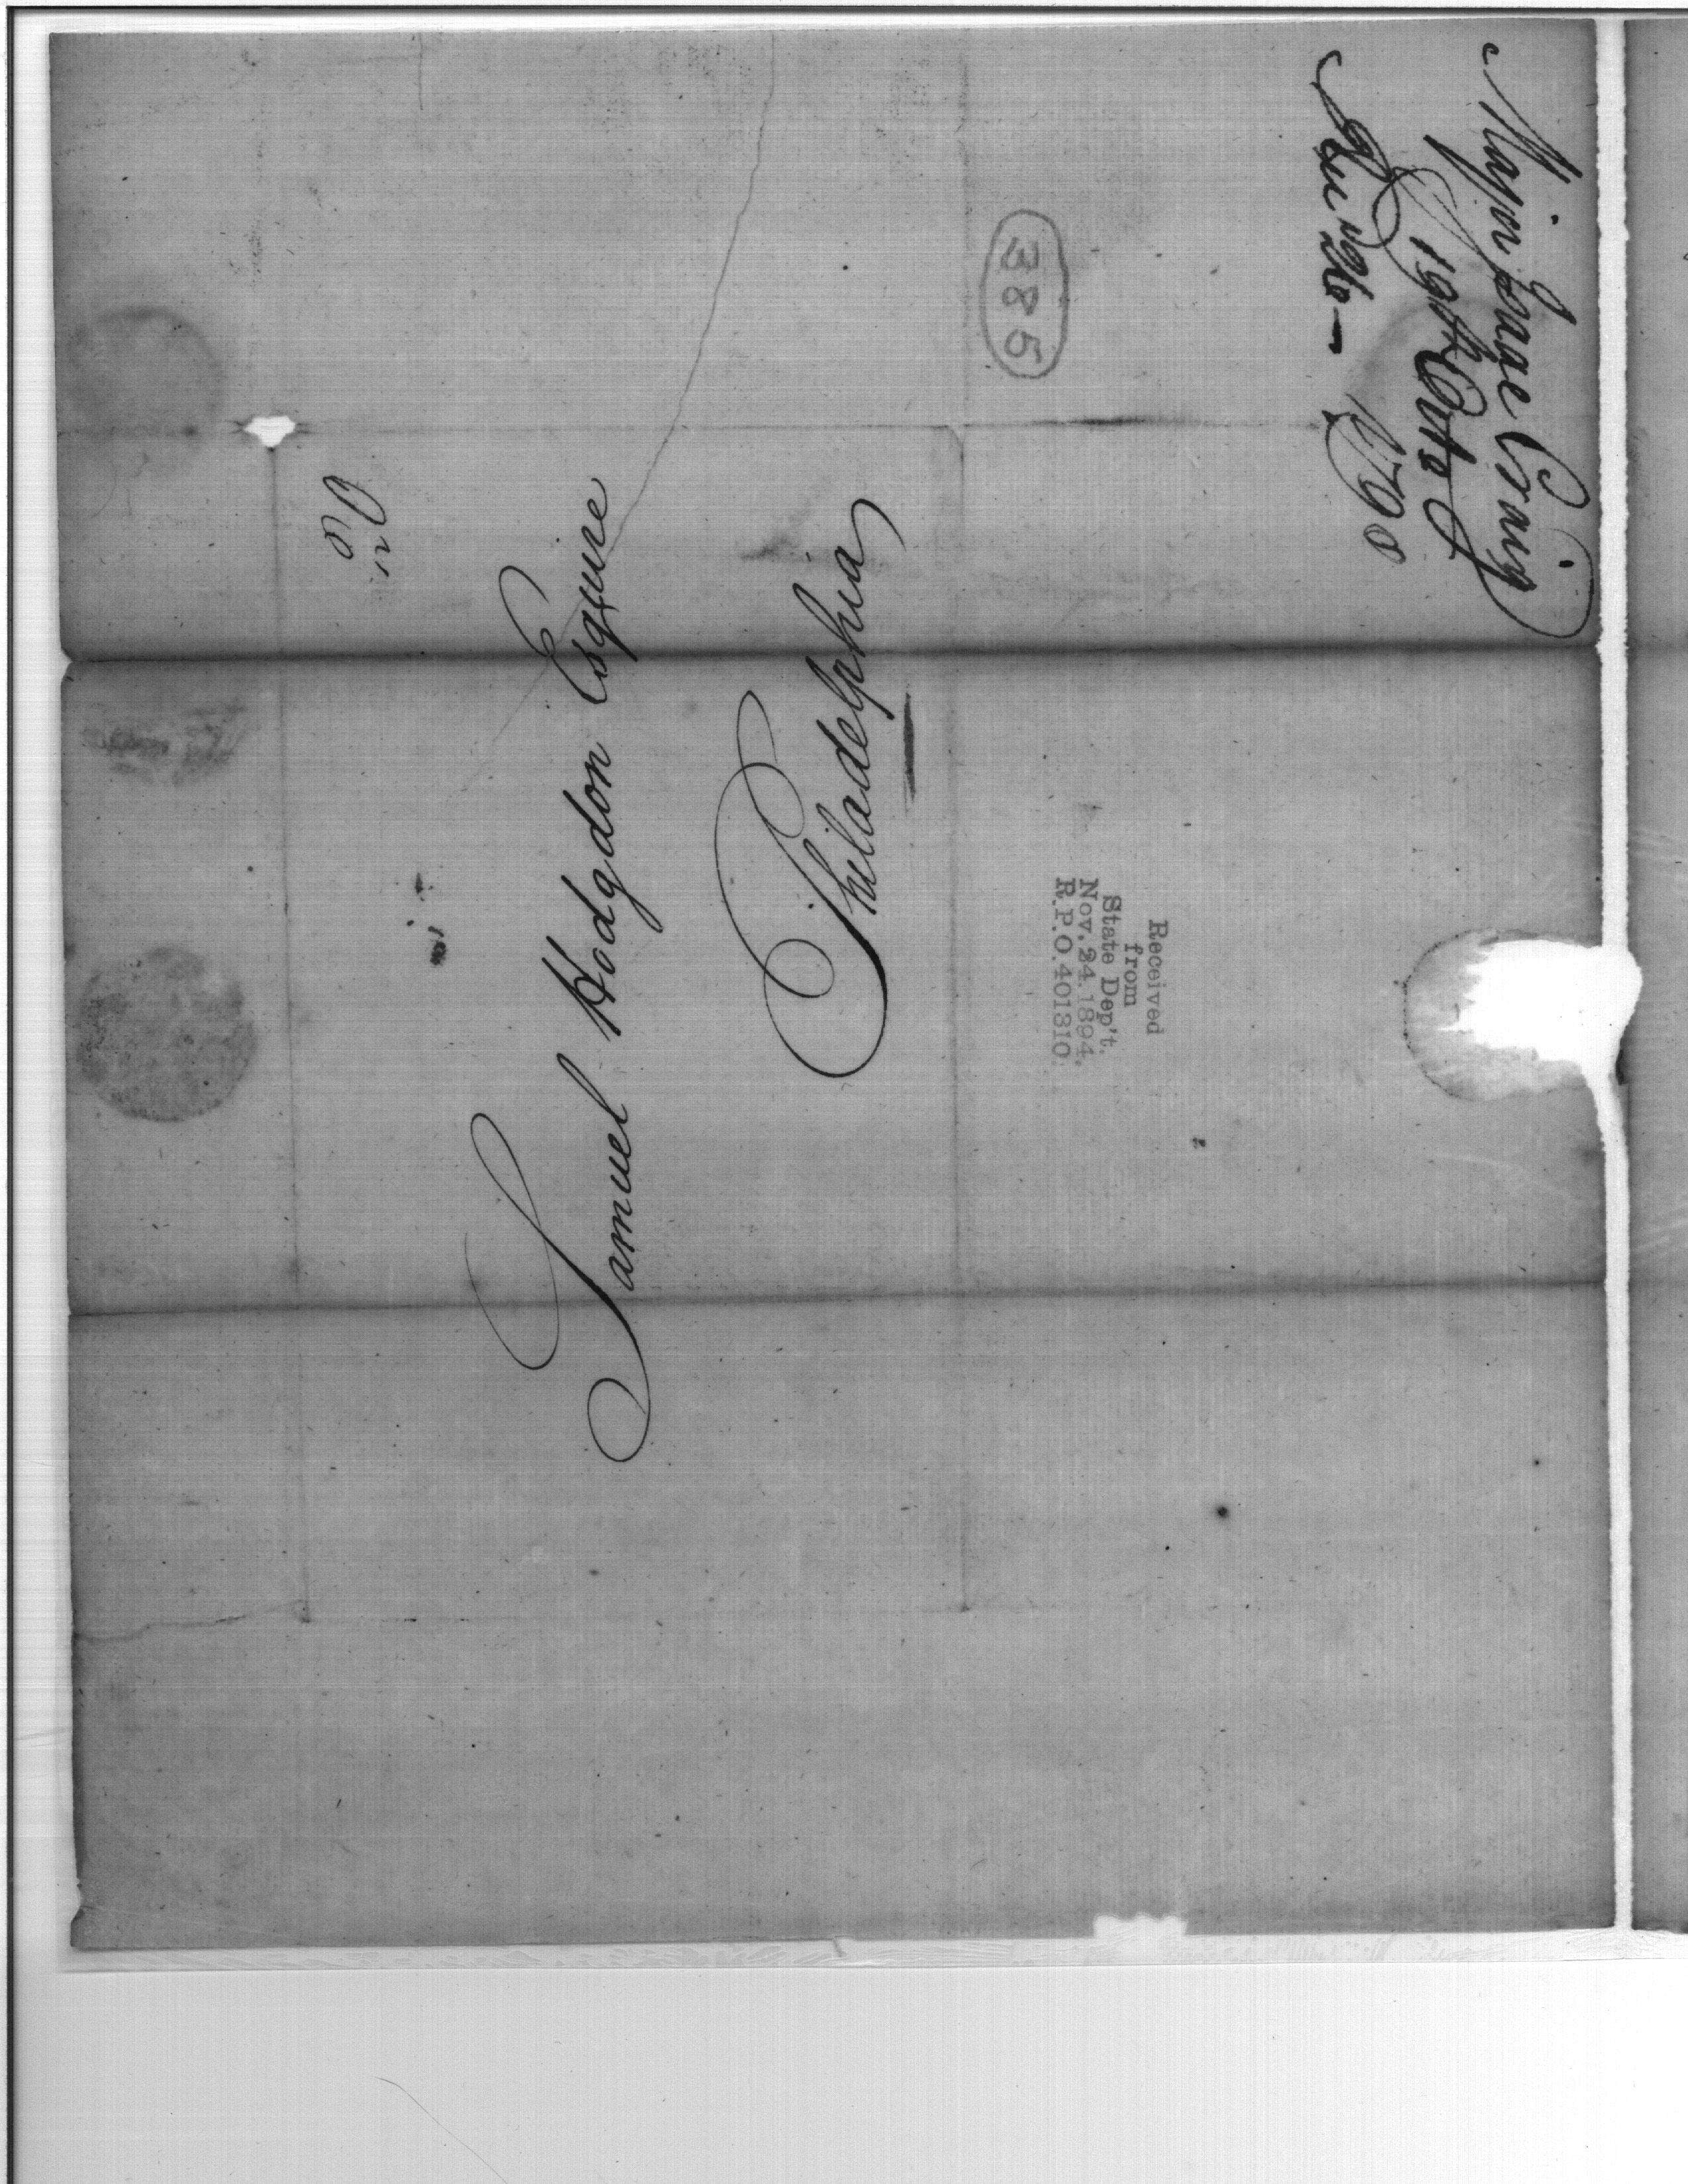 Major Isaac Craig
19th Octo
1790
385
Received
from
State Dep't.
Nov. 24. 1894.
R.P.O. 401310.
Samuel Hodgdon Esquire
Philadelphia